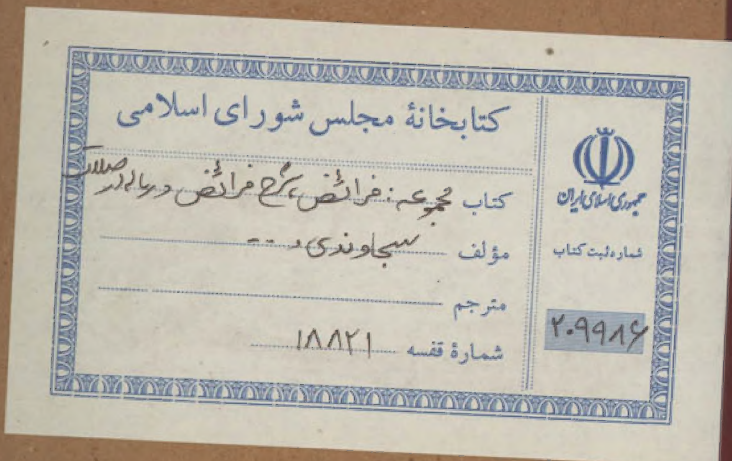 کتابخانهٔ مجلس شورای اسلامی
کتاب مجموعه: فرائض، شرح فرائض و رساله در
مؤلف سجاوندی و ..
مترجم
شمارهٔ قفسه ۱۸۸۲۱
جمهوری اسلامی ایران
شماره ثبت کتاب
۲۰۹۹۸۶